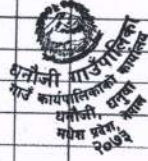 धनौजी गाउँपालिका
गाउँ कार्यपालिकाको कार्यालय
धनौजी, धनुषा
मधेश प्रदेश, नेपाल
२०७३